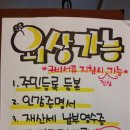 외상가능
* 구비서류 지참시 가능 *
1. 주민등록 등본
2. 인감증명서
3. 재산세 납부영수증